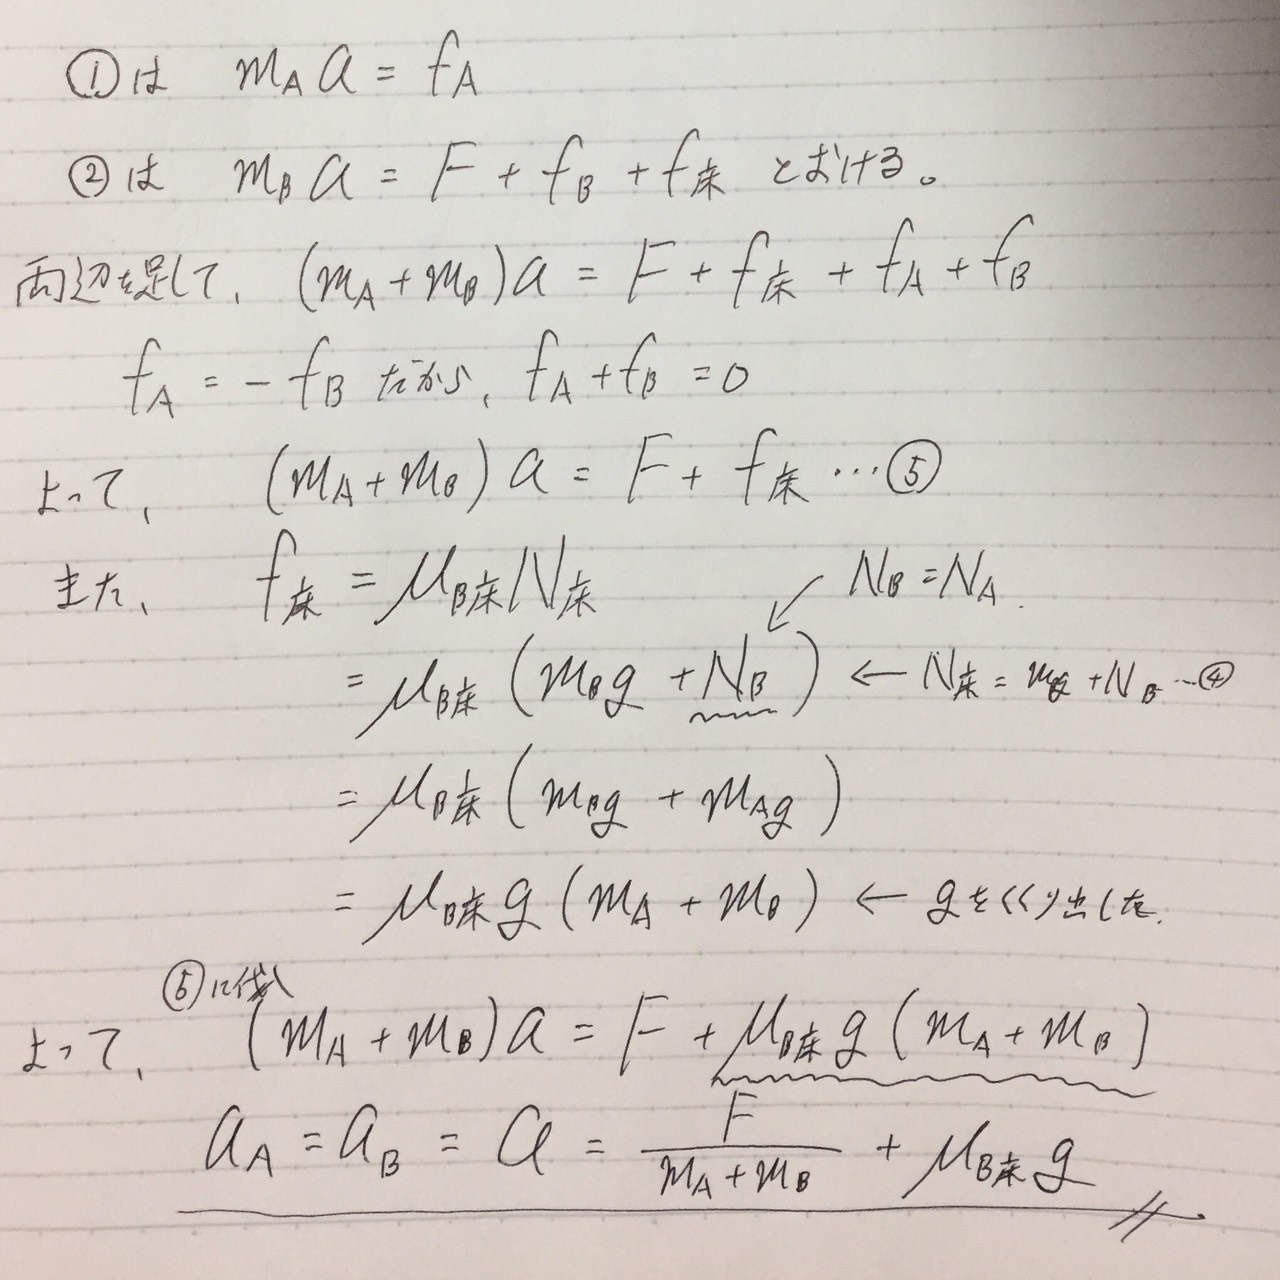 ①は m_A a = f_A
②は m_B a = F + f_B + f_床 とおける。
両辺を足して、 (m_A + m_B)a = F + f_床 + f_A + f_B
f_A = - f_B だから、 f_A + f_B = 0
よって、 (m_A + m_B) a = F + f_床 … ⑤
また、 f_床 = μ_B床 N_床 ↙ N_B = N_A.
= μ_B床 (m_B g + N_B) ← N_床 = m_B g + N_B … ④
= μ_B床 (m_B g + m_A g)
= μ_B床 g (m_A + m_B) ← gをくくり出した.
⑤に代入
よって、 (m_A + m_B)a = F + μ_B床 g (m_A + m_B)
a_A = a_B = a = F/(m_A + m_B) + μ_B床 g